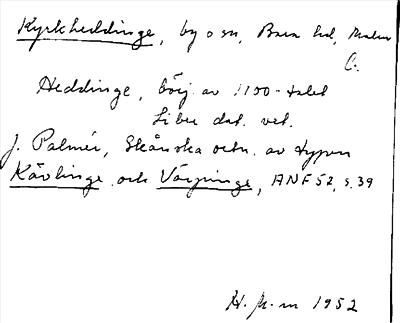 Kyrkheddinge, by o sn, Bara hd, Malm.
C.
Heddinge, börj. av 1100-talet
Liber dat. vet.
J. Palmér, Skånska ortn. av typen
Kävlinge och Värpinge, ANF 52, s. 39
1952